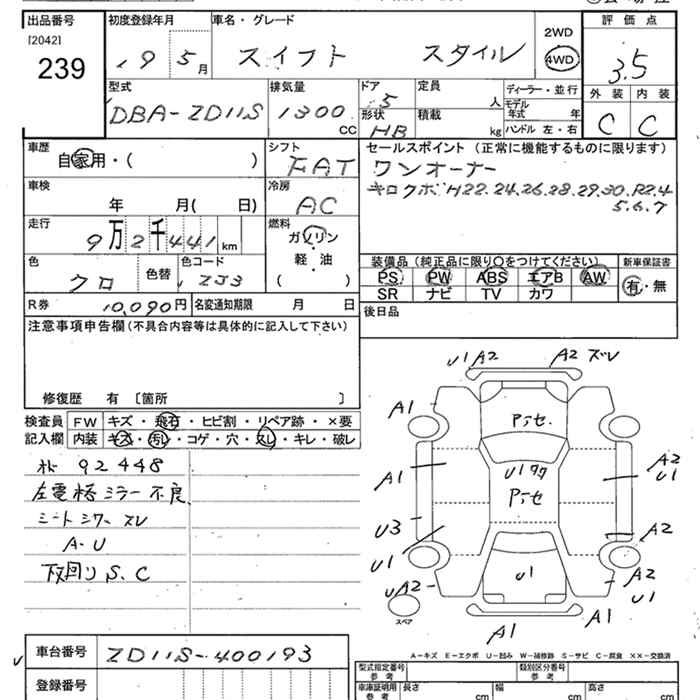 出品番号 初度登録年月 車名・グレード 評価点
[2042] 2WD
239 19 5月 スイフト スタイル 4WD 3.5
型式 排気量 ドア 定員 ディーラー・並行 外装 内装
DBA-ZD11S 1300 CC 5 人 モデル年式 年
形状 HB 積載 kg ハンドル 左・右 C C
車歴 シフト セールスポイント (正常に機能するものに限ります)
自家用・( ) FAT ワンオーナー
車検 冷房 キロクボ H22.24.26.28.29.30.R2.4
年 月( 日) AC 5.6.7
走行 燃料
9万2千441km ガソリン
軽・油
( )
色 色替 色コード 装備品 (純正品に限り○をつけてください) 新車保証書
クロ ZJ3 PS PW ABS エアB AW 有・無
SR ナビ TV カワ
R券 10,090円 名変通知期限 月 日 後日品
注意事項申告欄 (不具合内容等は具体的に記入して下さい)
修復歴 有 [箇所 ]
検査員 FW キズ・飛石・ヒビ割・リペア跡・×要
記入欄 内装 キズ・汚レ・コゲ・穴・スレ・キレ・破レ
92448
左電格ミラー不良
シートシワースレ
A-U
下回りS.C
U1 A2 A2 ズレ
A1
A1 U1 A2 U1
U3
U1 A2
UA2 U1 A2 U1
スペア A1 A1
A-キズ E-エクボ U-凹み W-補修跡 S-サビ C-腐食 ××-交換済
車台番号 ZD11S-400193
型式指定番号 参考 類別区分番号 参考
登録番号 車庫証明用 参考 長さ cm 幅 cm 高さ cm